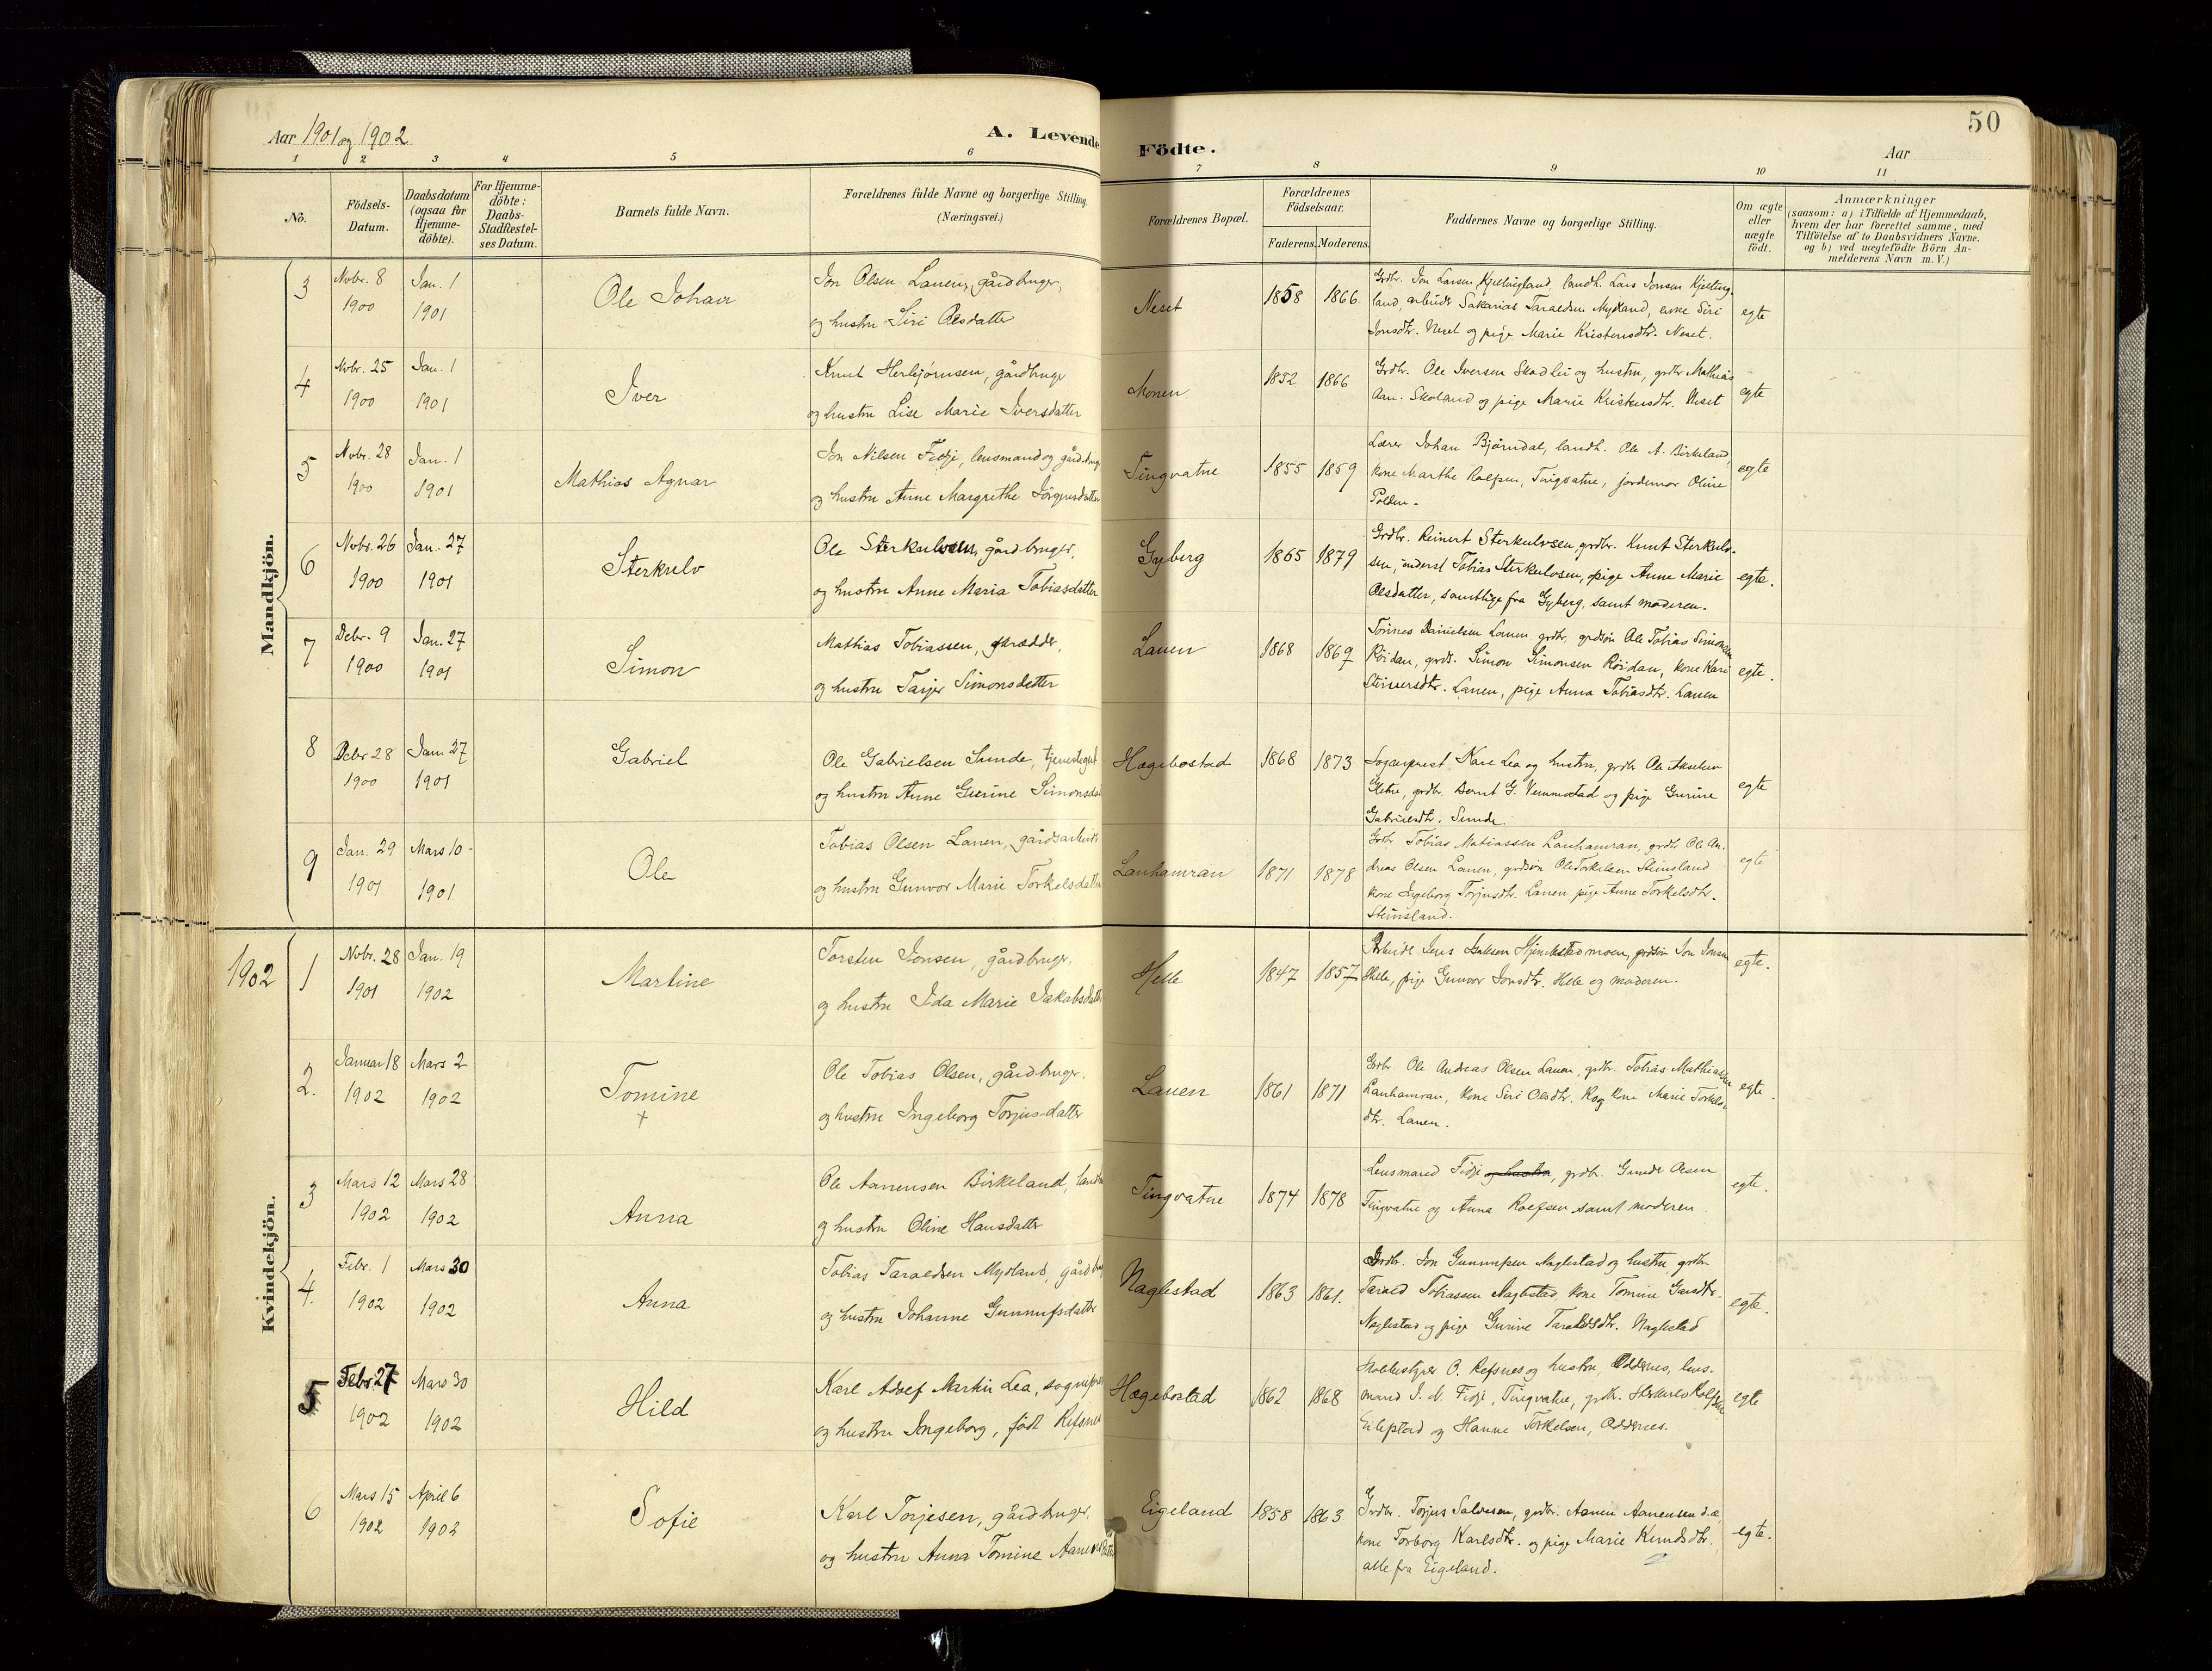 50
Aar 1901 og 1902.
A. Levende Födte.
Aar
1 2 3 4 5 6 7 8 9 10 11
No.
Födsels-Datum.
Daabsdatum (ogsaa for Hjemme-döbte).
For Hjemme-döbte: Daabs-Stadfæstel-ses Datum.
Barnets fulde Navn.
Forældrenes fulde Navne og borgerlige Stilling. (Næringsvei.)
Forældrenes Bopæl.
Forældrenes Födselsaar.
Faderens. Moderens.
Faddernes Navne og borgerlige Stilling.
Om ægte eller uægte födt.
Anmærkninger
(saasom: a) i Tilfælde af Hjemmedaab,
hvem der har forrettet samme, med
Tilföielse af to Daabsvidners Navne,
og b) ved uægtefödte Börn An-
melderens Navn m. V.)
Mandkjön.
3 Novbr. 8 1900 Jan. 1 1901 Ole Johan
Jon Olsen Lauen, gårdbruger,
og hustru Siri Olsdatter
Neset 1858 1866
Grdbr. Jon Larsen Kjellingland, landh. Lars Jonsen Kjelling-
land, arbeidr Sakarias Taraldsen Mydland, enke Siri
Jonsdtr. Neset og pige Marie Kristensdtr. Neset.
egte
4 Novbr. 25 1900 Jan. 1 1901 Iver
Knut Herbjørnsen, gårdbruger
og hustru Lise Marie Iversdatter
Monen 1852 1866
Grdbr. Ole Iversen Skadlei og hustru, grdbr Mathias
Aan. Skoland og pige Marie Kristensdtr. Neset
egte
5 Novbr. 28 1900 Jan. 1 1901 Mathias Agnar
Jon Nilsen Fidje, lensmand og gårdbrug
og hustru Anne Margrethe Jörgensdatter
Tingvatne 1855 1859
Lærer Johan Bjørndal, landh. Ole A. Birkeland,
kone Marthe Rolfsen, Tingvatne, jordemor Oline
egte
6 Novbr. 26 1900 Jan. 27 1901 Sterkulv
Ole Sterkulvsen, gårdbruger,
og hustru Anne Maria Tobiasdatter
Gyberg 1865 1879
Grdbr. Reinert Sterkulvsen, grdbr. Knut Sterkulv-
sen, inderst Tobias Sterkulvsen, pige Anne Marie
Olsdatter, samtlige fra Gyberg, samt moderen.
egte.
7 Debr. 9 1900 Jan. 27 1901 Simon
Mathias Tobiassen,
og hustru Tarjer Simonsdatter
Lauen 1868 1869
Tönnes Danielsen Lauen, grdbr. grdsön Ole Tobias Simonsen
Röidan, grds. Simon Simonsen Röidan, kone Kari
Lauen, pige Anna Tobiasdtr. Lauen
egte.
8 Debr 28 1900 Jan. 27 1901 Gabriel
Ole Gabrielsen Sunde, tjenestegut
og hustru Anne Gurine Simonsdat
Hægebostad 1868 1873
Sogneprest Karl Lea og hustru, grdbr Ole Akselsen
grdbr. Bernt G. Vemmestad og pige Gurine
Gabrielsdtr. Sunde.
egte
9 Jan. 29 1901 Mars 10 1901 Ole
Tobias Olsen Lauen, gårdsarbeidr
og hustru Gunvor Marie Torkelsdatter
Lauhamran 1871 1878
Grdbr Tobias Matiassen Lauhamran, grdb. Ole An-
dreas Olsen Lauen, grdsön Ole Torkelsen Steinsland
kone Ingeborg Torjusdtr. Lauen, pige Anne Torkelsdtr.
Steinsland.
egte
1902
Kvindekjön.
1 Novbr. 28 1901 Jan. 19 1902 Martine
Torsten Jonsen, gårdbruger,
og hustru Ida Marie Jakobsdatter
Helle 1847 1857
Arbeidr Jens moen, grdsön Jon Jonsen
Helle, pige Gunvor Jonsdtr. Helle og moderen.
egte.
2. Januar 18 1902 Mars 2 1902 Tomine
+
Ole Tobias Olsen, gårdbruger.
og hustru Ingeborg Torjusdatter
Lauen 1861 1871
Grdbr Ole Andreas Olsen Lauen, grdbr. Tobias Mathiassen
Lauhamran, kone Siri Olsdtr. kone Marie Torkels-
dtr. Lauen.
egte.
3 Mars 12 1902 Mars 28 1902 Anna
Ole Aanensen Birkeland, land
og hustru Oline Hansdatter
Tingvatne 1874 1878
Lensmand Fidje og hustru, grdbr. Gunde Olsen
Tingvatne og Anna Rolfsen samt moderen.
egte.
4. Febr. 1 1902 Mars 30 1902 Anna
Tobias Taraldsen Mydland, gårdbru
og hustru Johanne Gunnufsdatter
Naglestad 1863 1861.
Grdbr. Jon Gunnufsen Naglestad og hustru grdbr
Tarald Tobiassen Naglestad, kone Tomine
Naglestad og pige Gurine Taraldsdtr. Naglestad
egte.
5 Febr 27 1902 Mars 30 1902 Hild
Karl Adolf Martin Lea, sognepre
og hustru Ingeborg, födt Refsnes
Hægebostad 1862 1868
O. Refsnes og hustru, Oddernes, lens-
mand J. N. Fidje, Tingvatne, grdbr. Sterkulv Rolfsen
Eilefstad og Hanne Torkelsen, Oddernes.
egte
6 Mars 15 1902 April 6 1902 Sofie
Karl Torjesen, gårdbruger,
og hustru Anna Tomine Aanensdatter
Eigeland 1858 1863
Grdbr. Torjus Salvesen, grdbr. Aanen Aanensen d.æ,
kone Torborg Karlsdtr. og pige Marie Knudsdtr.
alle fra Eigeland.
egte.